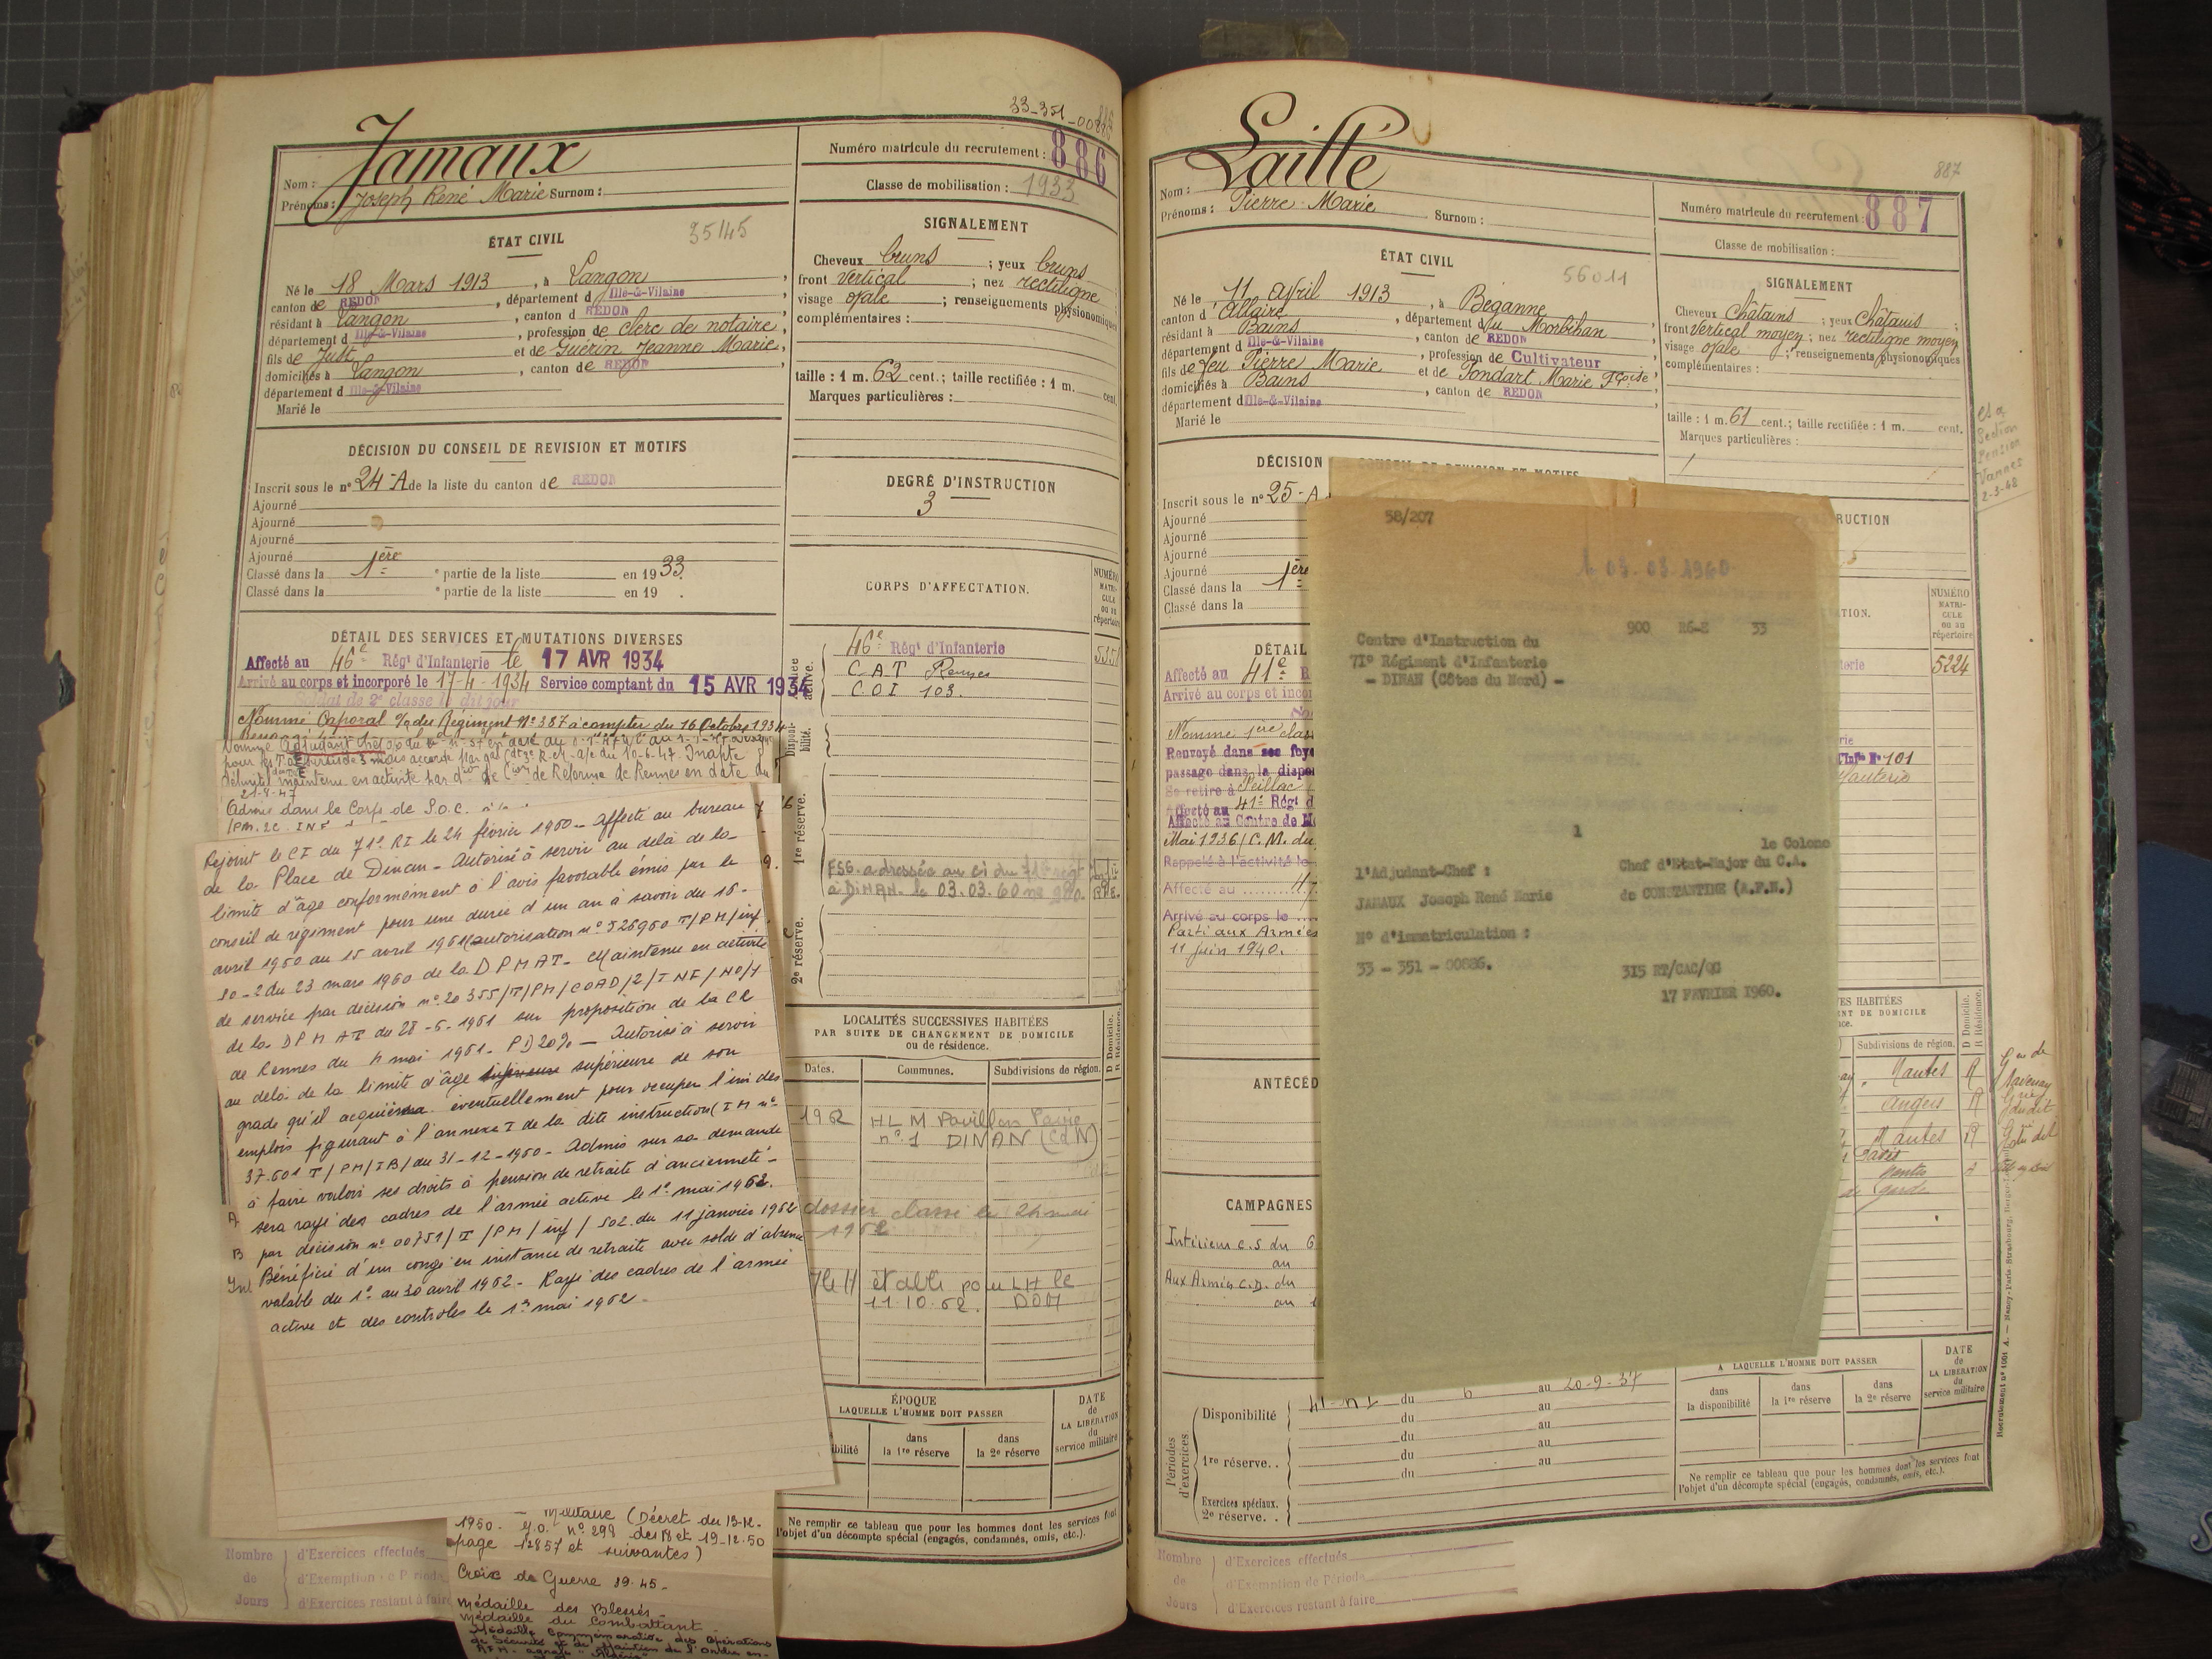 33-351-00886
Jamaux
Nom :
Prénoms : Joseph René Marie Surnom :
Numéro matricule du recrutement : 886
Classe de mobilisation : 1933
ÉTAT CIVIL
35145
Né le 18 Mars 1913, à Langon,
canton de REDON, département d Ille-&-Vilaine,
résidant à Langon, canton d REDON,
département d Ille-&-Vilaine, profession de clerc de notaire,
fils de Just et de Guérin Jeanne Marie,
domiciliés à Langon, canton de REDON,
département d Ille-&-Vilaine
Marié le
SIGNALEMENT
Cheveux bruns ; yeux bruns
front vertical ; nez rectiligne
visage ovale ; renseignements physionomiques
complémentaires :
taille : 1 m. 62 cent.; taille rectifiée : 1 m. cent.
Marques particulières :
DÉCISION DU CONSEIL DE REVISION ET MOTIFS
Inscrit sous le n° 24-A de la liste du canton de REDON
Ajourné
Ajourné
Ajourné
Ajourné
Classé dans la 1ère partie de la liste en 1933.
Classé dans la partie de la liste en 19 .
DEGRÉ D'INSTRUCTION
3
DÉTAIL DES SERVICES ET MUTATIONS DIVERSES
Affecté au 46e Rég' d'Infanterie le 17 AVR 1934
Arrivé au corps et incorporé le 17-4-1934 Service comptant du 15 AVR 1934
Soldat de 2e classe le dit jour
Nommé Caporal o/ du Régiment N° 387 à compter du 16 Octobre 1934
Nommé Adjudant Chef
définitif maintenu en activité par don de Cion de Réforme de Rennes en date du
21-8-47
Admis dans le Corps de S.O.C.
Rejoint le CI du 71e RI le 24 février 1960 - Affecté au bureau
de la Place de Dinan - Autorisé à servir au delà de la
limite d'âge conformément à l'avis favorable émis par le
conseil de régiment pour une durée d'un an à savoir du 16
avril 1960 au 15 avril 1961 (autorisation n° 526960 T/PM/inf
so-2 du 23 mars 1960 de la DPMAT - Maintenu en activité
de service par décision n° 20355/T/PM/COAD/2/INF/NO/1
de la DPMAT du 28-6-1961 sur proposition de la CR
de Rennes du 4 mai 1961 - PD 20% - Autorisé à servir
au delà de la limite d'âge supérieure de son
grade qu'il acquièrra éventuellement pour occuper l'un des
emplois figurant à l'annexe I de la dite instruction (IM n°
37.601 T/PM/IB/ du 31-12-1960 - Admis sur sa demande
à faire valoir ses droits à pension de retraite d'ancienneté -
A sera rayé des cadres de l'armée active le 1er mai 1962.
B par décision n° 00751/T/PM/inf/502 du 11 janvier 1962
Bénéficie d'un congé en instance de retraite avec solde d'absence
valable du 1er au 30 avril 1962 - Rayé des cadres de l'armée
active et des contrôles le 1er mai 1962 -
Militaire (Décret du 13-12-
1950. J.O. n° 299 des 18 et 19-12-50
page 12857 et suivantes)
Croix de Guerre 39-45 -
Médaille des Blessés -
Médaille du Combattant -
Médaille Commémorative des Opérations
de Sécurité et de Maintien de l'Ordre en
AFN - agrafe "Algérie"
Nombre de Jours
d'Exercices effectués
d'Exemption de Période
d'Exercices restant à faire
CORPS D'AFFECTATION.
NUMÉRO MATRICULE ou au répertoire
Armée active.
46e Rég' d'Infanterie 5351
C A T Rennes
C O I 103.
Disponibilité.
1re réserve.
FSG. adressée au CI du 71e régt
à DINAN le 03.03.60 n° 900.
2e réserve.
LOCALITÉS SUCCESSIVES HABITÉES
PAR SUITE DE CHANGEMENT DE DOMICILE
ou de résidence.
Dates. Communes. Subdivisions de région. D Domicile. R Résidence.
1962 HLM Pavillon
n° 1 DINAN (CdN)
dossier classé le 24 mai
1962
établi pour LH le
11.10.62.
ÉPOQUE
LAQUELLE L'HOMME DOIT PASSER
DATE de LA LIBÉRATION du service militaire
dans la 1re réserve
dans la 2e réserve
Ne remplir ce tableau que pour les hommes dont les services font
l'objet d'un décompte spécial (engagés, condamnés, omis, etc.).
887
Laillé
Nom :
Prénoms : Pierre Marie Surnom :
Numéro matricule du recrutement : 887
Classe de mobilisation :
ÉTAT CIVIL
56011
Né le 11 Avril 1913, à Béganne,
canton d'Allaire, département du Morbihan,
résidant à Bains, canton de REDON,
département d Ille-&-Vilaine, profession de Cultivateur
fils de feu Pierre Marie et de Pondart Marie Fçoise,
domiciliés à Bains, canton de REDON
département d Ille-&-Vilaine
Marié le
SIGNALEMENT
Cheveux châtains ; yeux châtains ;
front vertical moyen ; nez rectiligne moyen
visage ovale ; renseignements physionomiques
complémentaires :
taille : 1 m. 61 cent.; taille rectifiée : 1 m. cent.
Marques particulières :
Section
Pension
Vannes
2-3-48
DÉCISION
Inscrit sous le n° 25-A
Ajourné
Ajourné
Ajourné
Ajourné
Classé dans la 1ère
Classé dans la
DÉTAIL
Affecté au 41e R
Arrivé au corps et incor
Nommé 1ère clas
Renvoyé dans ses foye
passage dans la dispo
Se retire à Peillac
Affecté au 41e Rég' d
Affecté au Centre de M
Mai 1936 (C.M. du
Rappelé à l'activité le
Affecté au
Arrivé au corps le
Parti aux Armées
11 juin 1940.
ANTÉCÉD
CAMPAGNES
Intérieur C.S du 6
au
Aux Armées C.D. du
au
58/207
le 03.03.1960
900 RG-E 33
Centre d'Instruction du
71° Régiment d'Infanterie
- DINAN (Côtes du Nord) -
1
l'Adjudant-Chef :
JAMAUX Joseph René Marie
N° d'immatriculation :
33 - 351 - 00886.
le Colone
Chef d'Etat-Major du C.A.
de CONSTANTINE (A.F.N.)
315 RT/CAC/QG
17 FEVRIER 1960.
RUCTION
ATION.
NUMÉRO MATRICULE ou au répertoire
terie 5224
d'Infie N° 101
ES HABITÉES
NT DE DOMICILE
Subdivisions de région. D Domicile. R Résidence.
Nantes R
Angers R
Nantes R
Périodes d'exercices
Disponibilité 41e RI du 6 au 20-9-37
du au
du au
1re réserve. . du au
du au
Exercices spéciaux.
2e réserve. .
A LAQUELLE L'HOMME DOIT PASSER
dans la disponibilité
dans la 1re réserve
dans la 2e réserve
DATE de LA LIBÉRATION du service militaire
Ne remplir ce tableau que pour les hommes dont les services font
l'objet d'un décompte spécial (engagés, condamnés, omis, etc.).
Nombre de Jours
d'Exercices effectués
d'Exemption de Période
d'Exercices restant à faire